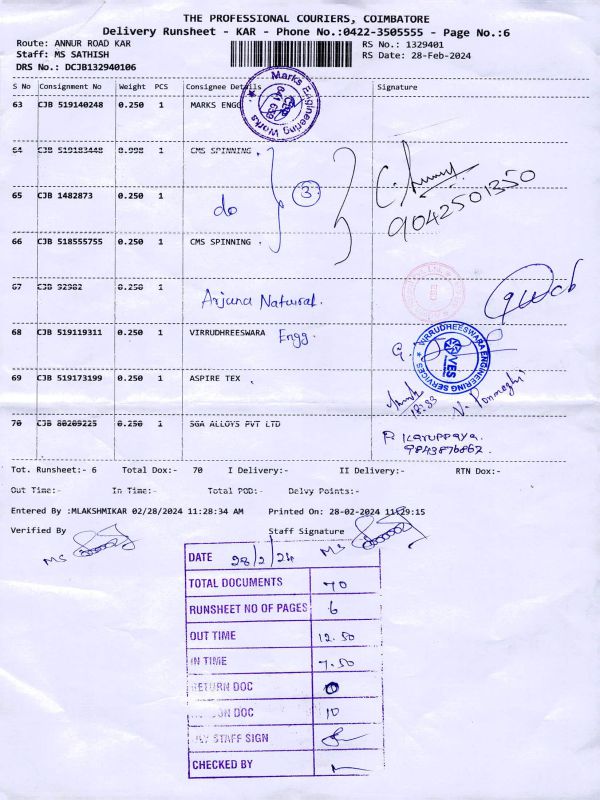 THE PROFESSIONAL COURIERS, COIMBATORE
Delivery Runsheet - KAR - Phone No.:0422-3505555 - Page No.:6
Route: ANNUR ROAD KAR RS No.: 1329401
Staff: MS SATHISH RS Date: 28-Feb-2024
DRS No.: DCJB132940106
S No Consignment No Weight PCS Consignee Details Signature
63 CJB 519140248 0.250 1 MARKS ENGG
Marks Engineering Works
64 CJB 519183448 0.998 1 CMS SPINNING .
65 CJB 1482873 0.250 1 do 3
9042501350
66 CJB 518555755 0.250 1 CMS SPINNING .
67 CJB 92982 0.250 1 Arjuna Natural.
68 CJB 519119311 0.250 1 VIRRUDHREESWARA Engg.
VIRRUDHEESWARA ENGINEERING SERVICES
VES
69 CJB 519173199 0.250 1 ASPIRE TEX .
70 CJB 80209225 0.250 1 SGA ALLOYS PVT LTD
P. Karuppaya.
9843876862.
Tot. Runsheet:- 6 Total Dox:- 70 I Delivery:- II Delivery:- RTN Dox:-
Out Time:- In Time:- Total POD:- Delvy Points:-
Entered By :MLAKSHMIKAR 02/28/2024 11:28:34 AM Printed On: 28-02-2024 11:29:15
Verified By Staff Signature
MS MS
DATE 28/2/24
TOTAL DOCUMENTS 70
RUNSHEET NO OF PAGES 6
OUT TIME 12.50
IN TIME 7.50
RETURN DOC 0
DOC 10
STAFF SIGN
CHECKED BY